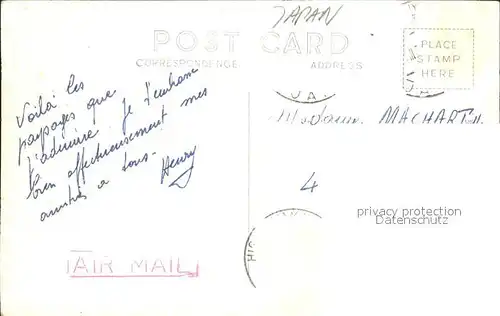 JAPAN
POST CARD
CORRESPONDENCE ADDRESS
PLACE
STAMP
HERE
Voilà les
paysages que
j'admire. Je t'embrasse
bien affectueusement mes
amitiés à tous.
Henry
Madame MACHART
4
privacy protection
VeronaWerbung.de
AIR MAIL